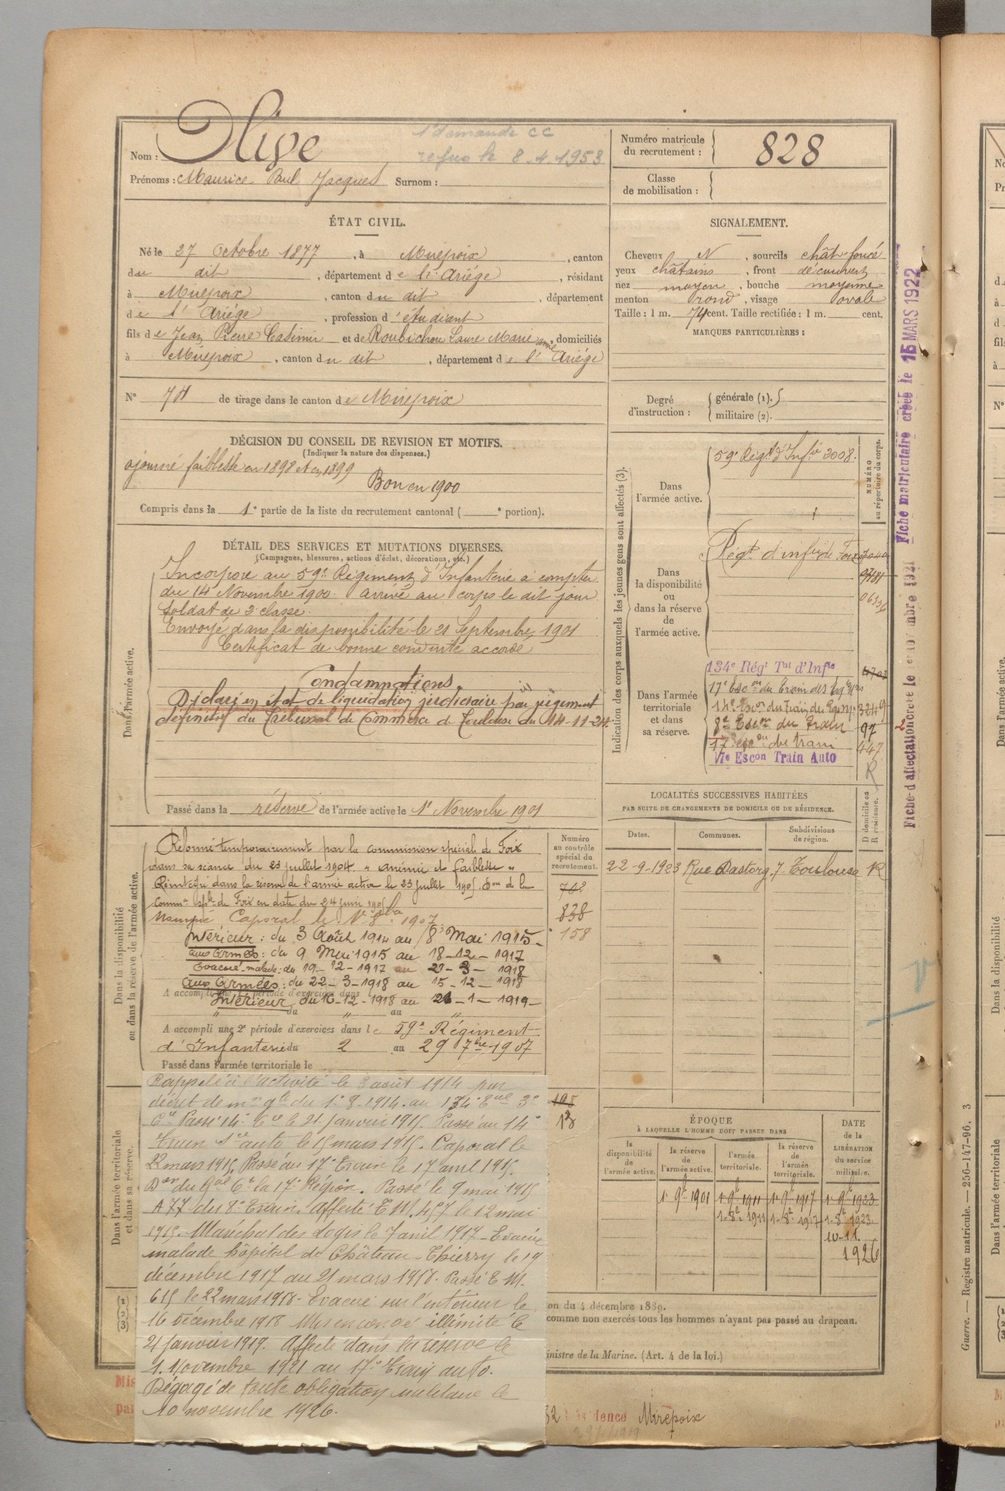 1e demande CC
refus le 8.4.1953
Nom : Olive
Prénoms : Maurice Paul Jacques Surnom :
Numéro matricule du recrutement : 828
Classe de mobilisation :
ÉTAT CIVIL.
Né le 27 Octobre 1877, à Mirepoix, canton
du dit, département de l'Ariége, résidant
à Mirepoix, canton du dit, département
de l'Ariége, profession d'étudiant
fils de Jean Pierre Casimir et de Roubichou Laure Marie, domiciliés
à Mirepoix, canton du dit, département de l'Ariége
N° de tirage dans le canton de Mirepoix
SIGNALEMENT.
Cheveux N, sourcils chât-foncé
yeux châtains, front découvert
nez moyen, bouche moyenne
menton rond, visage ovale
Taille : 1 m. 74 cent. Taille rectifiée : 1 m. cent.
MARQUES PARTICULIÈRES :
Degré d'instruction : générale (1). 5
militaire (2).
DÉCISION DU CONSEIL DE REVISION ET MOTIFS.
(Indiquer la nature des dispenses.)
ajourné faiblesse en 1898 et en 1899
Bon en 1900
Compris dans la 1e partie de la liste du recrutement cantonal ( e portion).
DÉTAIL DES SERVICES ET MUTATIONS DIVERSES.
(Campagnes, blessures, actions d'éclat, décorations, etc.)
Dans l'armée active.
Incorporé au 59e Régiment d'Infanterie à compter
du 14 Novembre 1900 arrivé au corps le dit jour
Soldat de 2e classe.
Envoyé dans la disponibilité le 21 Septembre 1901
Certificat de bonne conduite accordé
Condamnations.
Déclaré en état de liquidation judiciaire par jugement
définitif du Tribunal de Commerce de Toulouse du 14-11-24
Passé dans la réserve de l'armée active le 1er Novembre 1901
Indication des corps auxquels les jeunes gens sont affectés (3).
NUMÉRO au répertoire du corps.
Dans l'armée active.
59e Régt d'Infie 3008.
Dans la disponibilité ou dans la réserve de l'armée active.
Régt d'infie de Foix
Dans l'armée territoriale et dans sa réserve.
134e Régt Tal d'Infie
17e Escon du Train des Eq.
14e Escon du Train des Equip. 3249
8e Escon du Train 97
17e Escon du train 447
17e Escon Train Auto R
Fiche d'affectation créée le
Fiche matriculaire créée le 15 MARS 1922
LOCALITÉS SUCCESSIVES HABITÉES
PAR SUITE DE CHANGEMENTS DE DOMICILE OU DE RÉSIDENCE.
Dates. Communes. Subdivisions de région. D domicile ou R résidence.
22-9-1903 Rue Dastorg, 7 Toulouse R
Dans la disponibilité ou dans la réserve de l'armée active.
Numéro au contrôle spécial du recrutement.
Réformé temporairement par la commission spéciale de Foix
dans sa séance du 23 juillet 1904 "anémie et faiblesse"
Réintégré dans la réserve de l'armée active le 23 juillet 1905. Don de la
Commn Sple de Foix en date du 24 juin 1905
Nommé Caporal le 1907
Intérieur : du 3 Août 1914 au 8 Mai 1915-
aux Armées : du 9 Mai 1915 au 18-12-1917
Evacué malade : du 19-12-1917 au 21-3-1918
aux Armées : du 22-3-1918 au 15-12-1918
A accompli une 1e période d'exercices dans
Intérieur du 16-12-1918 au 21-1-1919-
838
158
A accompli une 2e période d'exercices dans le 59e Régiment
d'Infanterie du 2 au 29 7bre 1907
Passé dans l'armée territoriale le
Dans l'armée territoriale et dans sa réserve.
13
Rappelé à l'activité le 3 août 1914 par
décret de mon gle du 1e 8.1914. au 134e Tal 3e
Cie Passé 14e Cie le 21 janvier 1915. Passé au 14e
Train 1ie auto le 15 mars 1915. Caporal le
22 mars 1915. Passé au 17e Train le 17 avril 1915.
du Gal Ct la 17e Région. Passé le 9 mai 1915
du 8e Train. Affecté T.M. 457 le 12 mai
1915. Maréchal des Logis le 7 avril 1917. Evacué
malade hôpital de Château-Thierry le 19
décembre 1917 au 21 mars 1918. Passé T.M.
615 le 22 mars 1918. Evacué sur l'intérieur le
16 décembre 1918. Mis en congé illimité le
21 janvier 1919. Affecté dans la réserve le
1 Novembre 1921 au 17e Train auto.
Dégagé de toute obligation militaire le
10 novembre 1926.
ÉPOQUE
À LAQUELLE L'HOMME DOIT PASSER DANS
DATE de la LIBÉRATION du service militaire.
la disponibilité de l'armée active. la réserve de l'armée active. l'armée territoriale. la réserve de l'armée territoriale.
1er 9b 1901 1er 9b 1911 1er 9b 1917 1er 9b 1923
10-11
1926
on du 4 décembre 1889.
comme non exercés tous les hommes n'ayant pas passé au drapeau.
inistre de la Marine. (Art. 4 de la loi.)
résidence Mirepoix
Guerre. — Registre matricule. — 256-147-96. 3